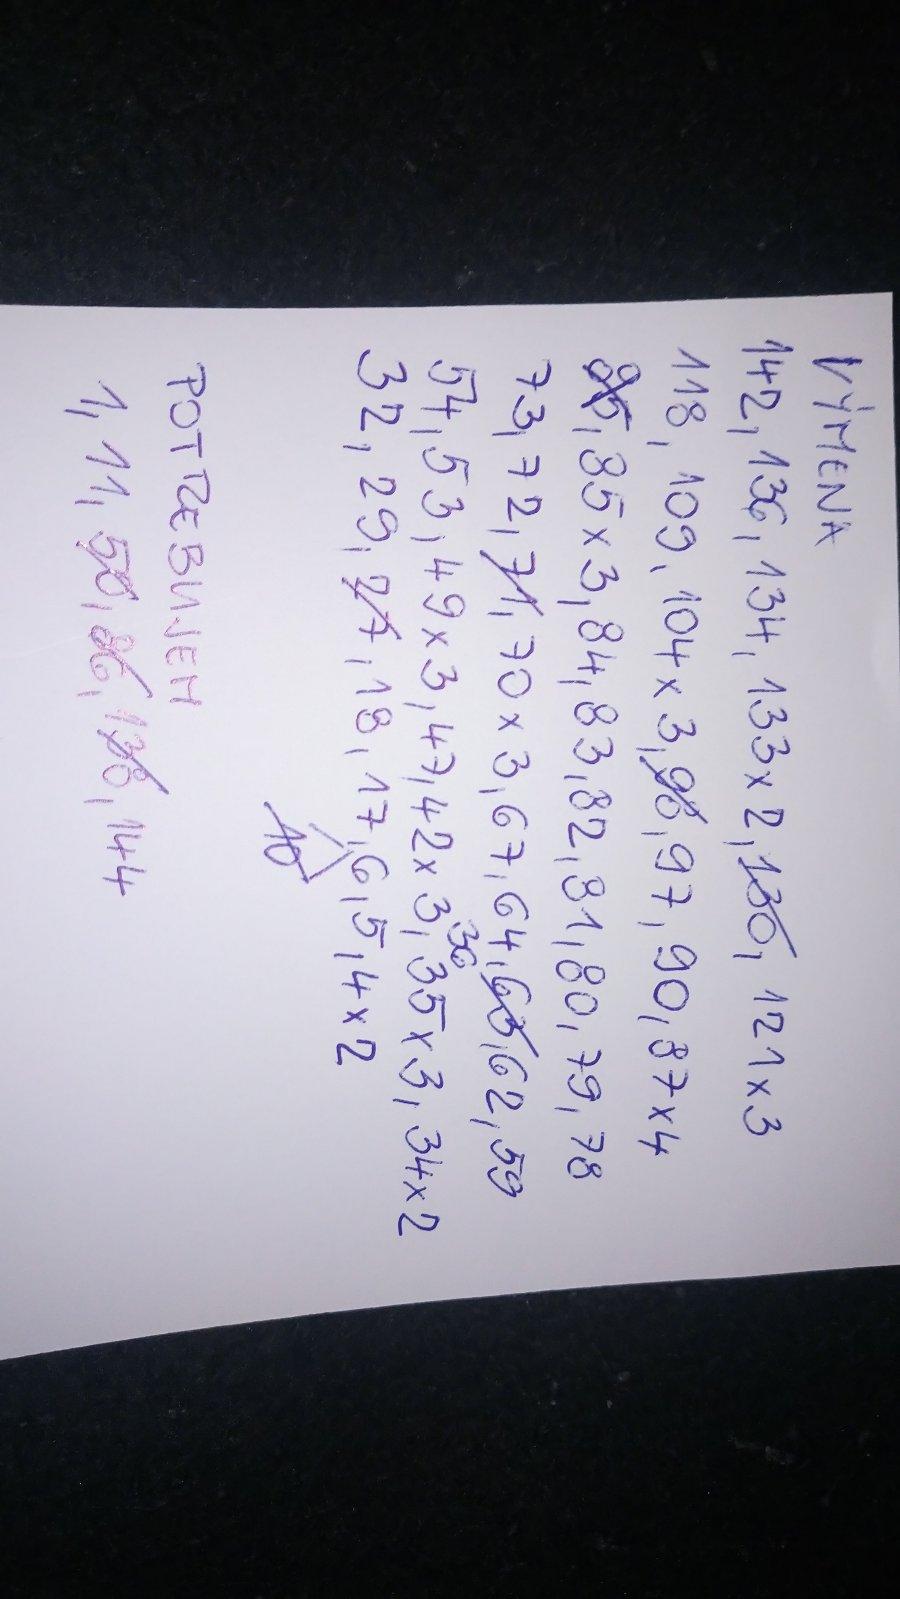 VÝMENA
142, 136, 134, 133x2, 130, 121x3
118, 109, 104x3, 98, 97, 90, 87x4
85x3, 84, 83, 82, 81, 80, 79, 78
73, 72, 71, 70x3, 67, 64, 63, 62, 59
54, 53, 49x3, 47, 42x3, 36, 35x3, 34x2
32, 29, 27, 18, 17, 6, 5, 4x2
10
POTREBUJEM
1, 11, 50, 86, 138, 144